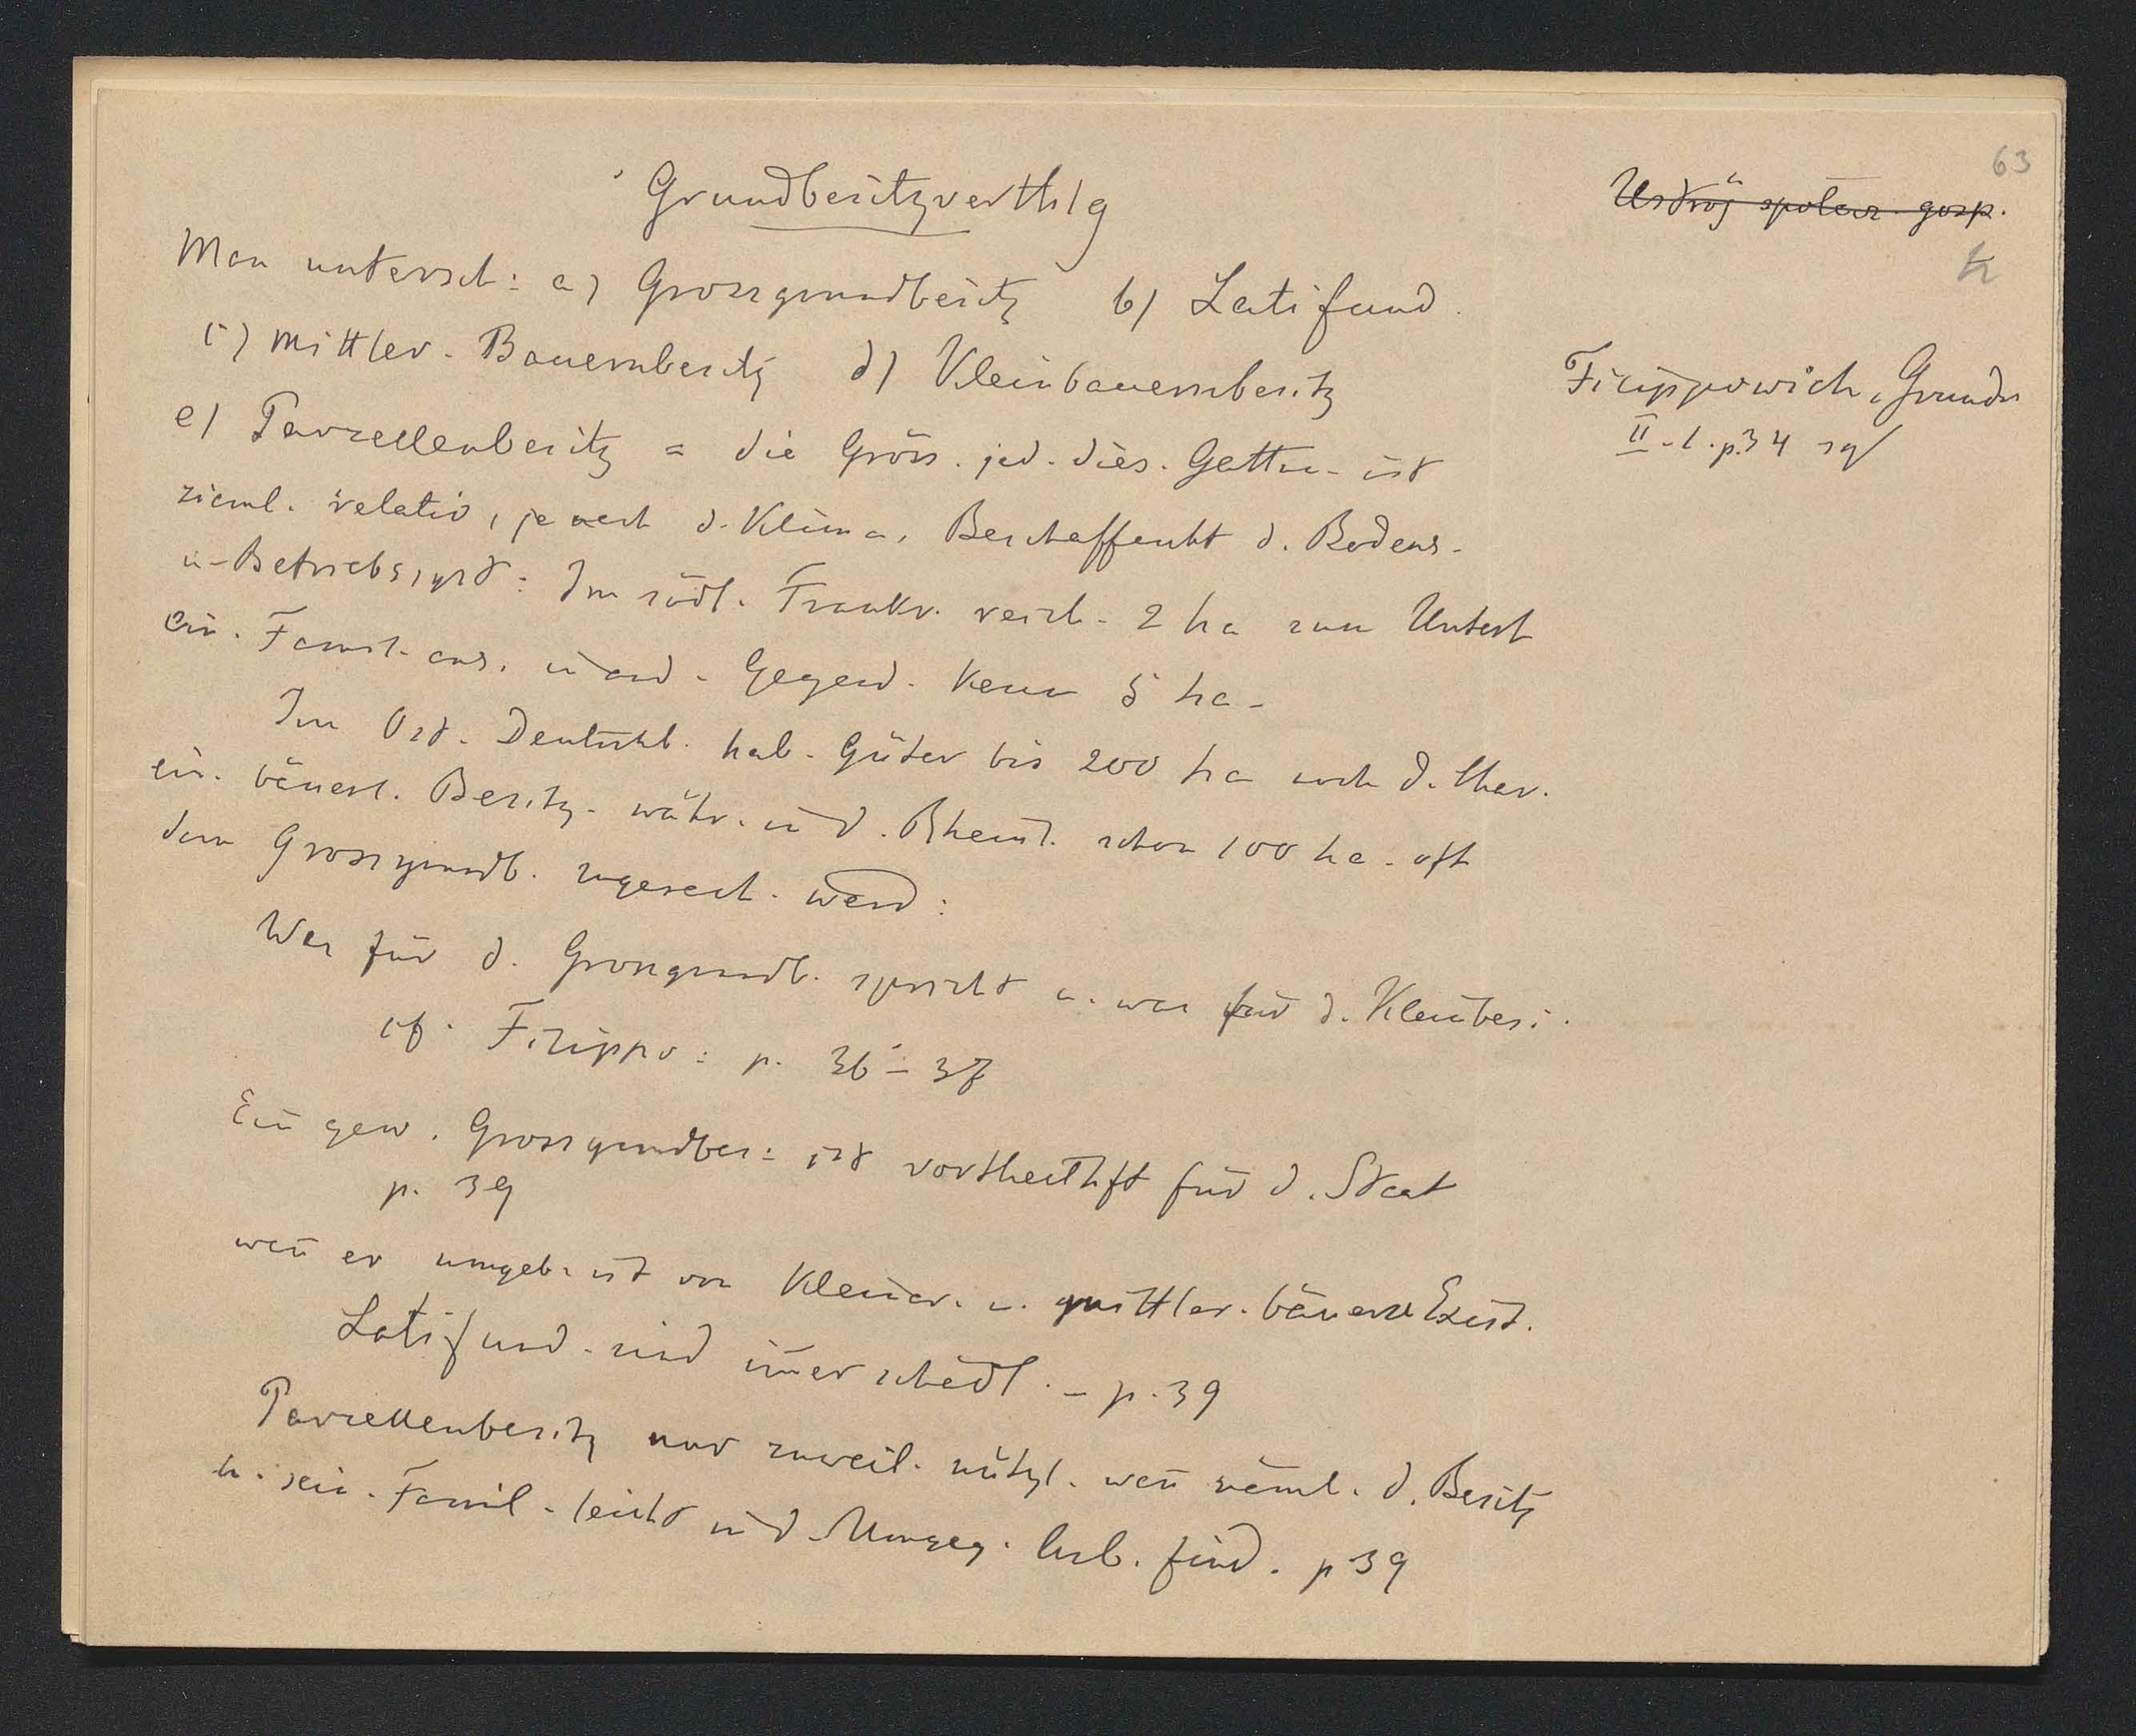 63
Ustrój społecz. gosp.
Grundbesitzverthlg
Man untersch: a) Grossgrundbesitz b) Latifund.
c) mittler. Bauernbesitz d) Kleinbauernbesitz
e) Parzellenbesitz = die Gröss. jed. dies. Gattu. ist
zieml. relativ, je nach d. Klima, Beschaffenht d. Bodens.
u. Betriebssyst: Im südl. Frankr. reich. 2 ha zum Unterh
ein. Famil. aus. in and. Gegend. kaum 5 ha.
Im Ost. Deutschl. hab. Güter bis 200 ha noch d. Char.
ein. bäuerl. Besitz. währ. in d. Rheinl. schon 100 ha. oft
dem Grossgrundb. zugerech. werd:
Was für d. Grossgrundb. spricht u. was für d. Kleinbes:
cf. Filippo: p. 36–37
Ein gew. Grossgrundbes: ist vortheilhft für d. Staat
p. 39
wen̄ er umgeb. ist von Kleiner. u. mittler. bäuerl Exist.
Latifund. sind im̄er schädl. – p. 39
Parzellenbesitz nur zuweil. nützl. wen̄ näml. d. Besitz
u. sein. Famil. leicht in d. Umgeg. Arb. find. p 39
Filippowich, Grundr
II. 1. p. 34 sq